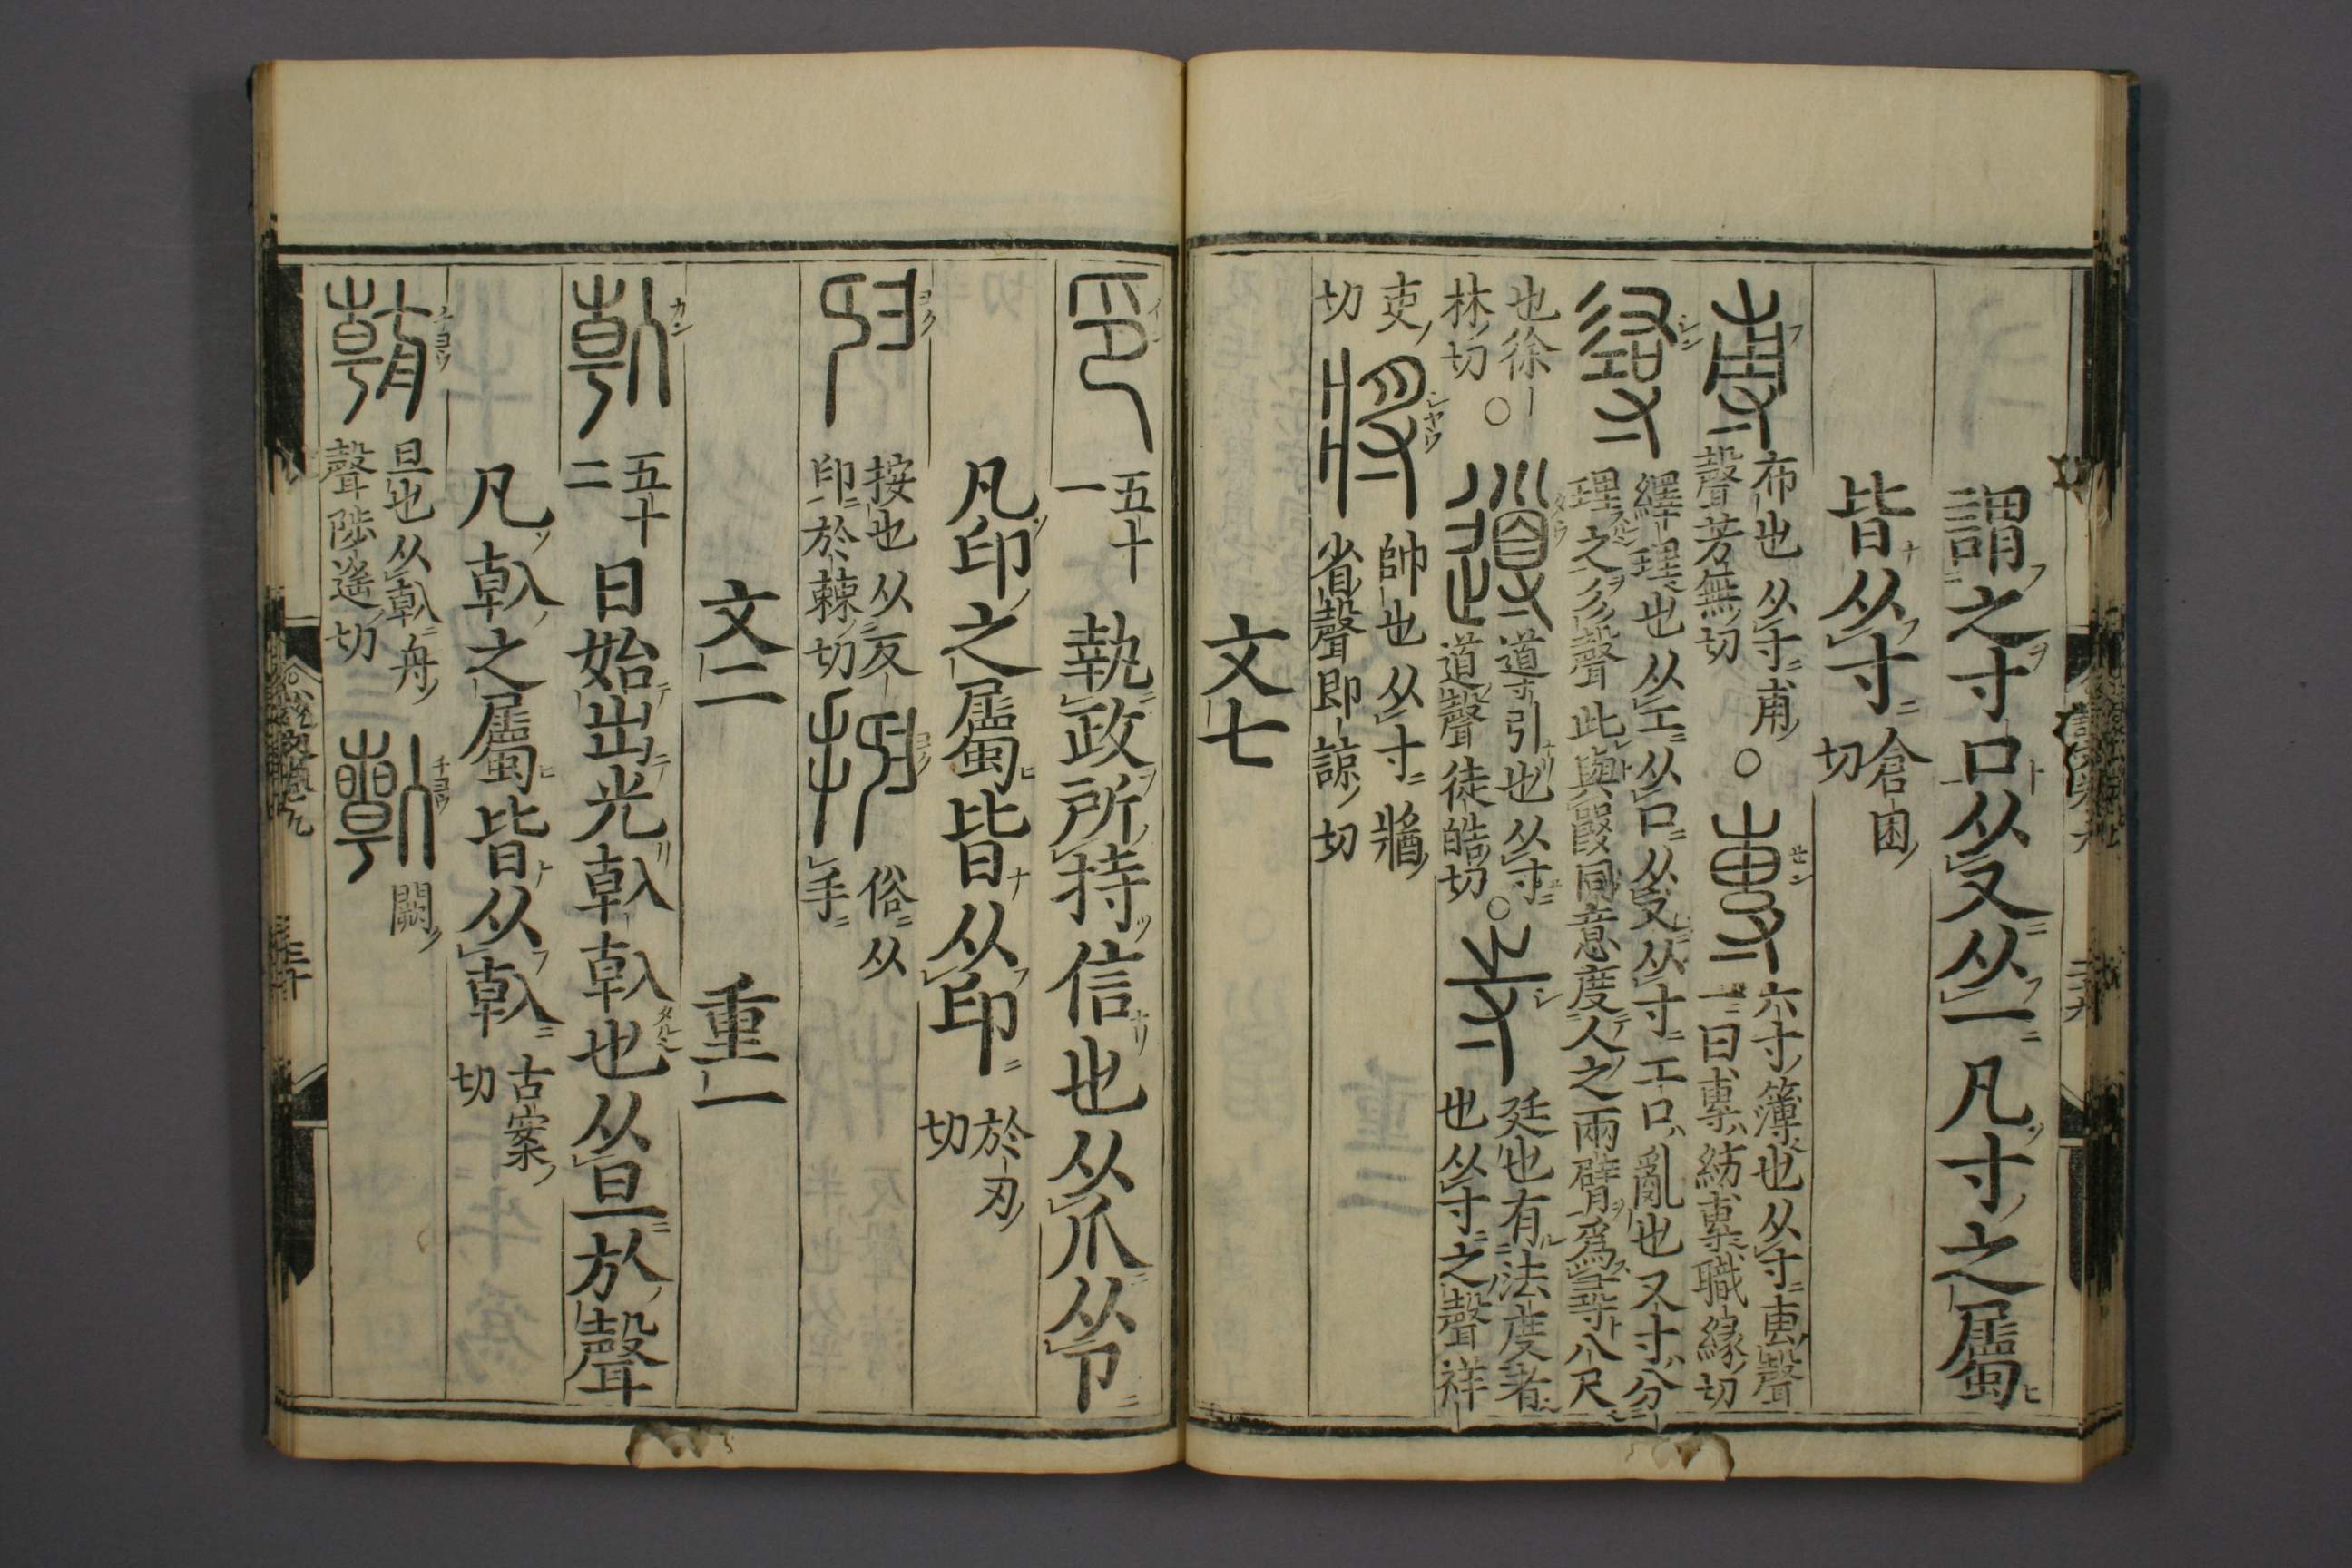 謂之寸口从又从一凡寸之屬
皆从寸倉困切
尃布也从寸甫聲芳無切○專六寸簿也从寸叀聲一曰專紡專職緣切
繹理也从工从口从又从寸工口亂也又寸分理之彡聲此與𤕦同意度人之兩臂爲尋八尺
也徐林切○導引也从寸道聲徒皓切○寺廷也有法度者也从寸之聲祥
吏切將帥也从寸牆省聲即諒切
文七
印五十一執政所持信也从爪从卪
凡印之屬皆从印於刃切
按也从反印於棘切俗从手
文二 重一
倝五十二日始出光倝倝也从旦㫃聲
凡倝之屬皆从倝古案切
旦也从倝舟聲陟遙切 闕